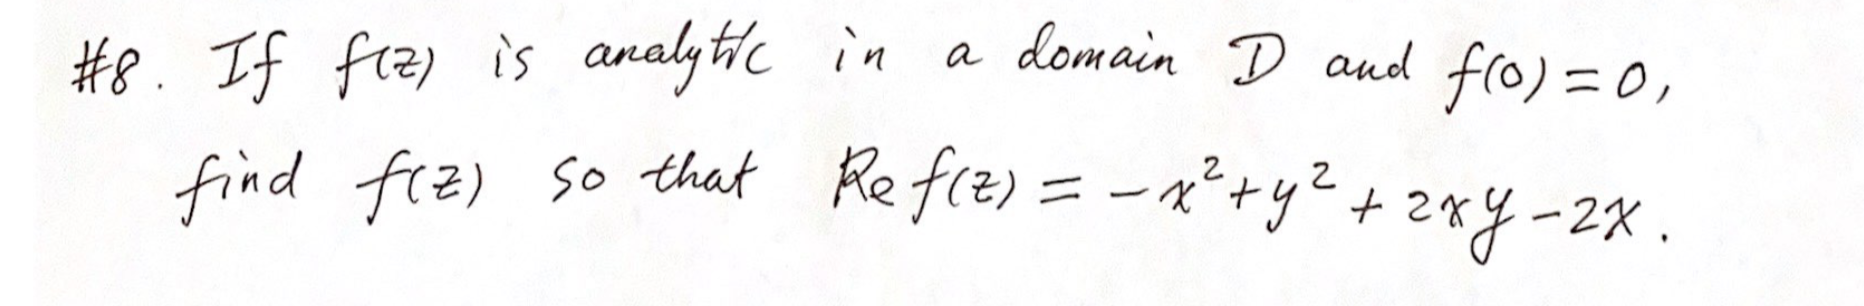 #8. If f(z) is analytic in a domain D and f(0) = 0,
find f(z) so that Re f(z) = -x² + y² + 2xy - 2x.